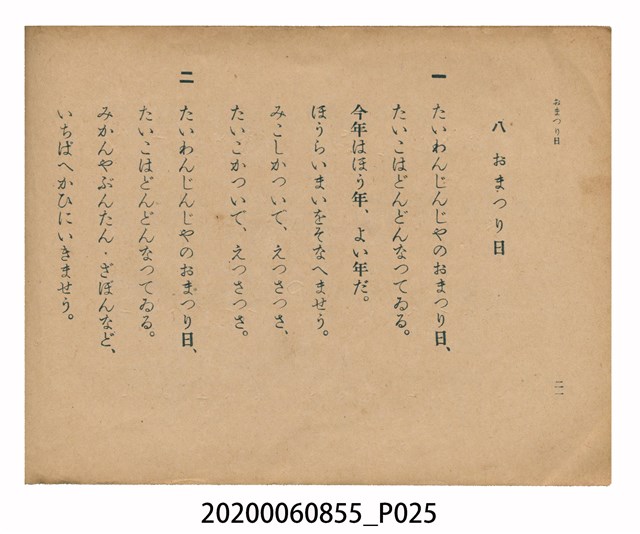 おまつり日
二一
八 おまつり日
一 たいわんじんじやのおまつり日、
たいこはどんどんなつてゐる。
今年はほう年、よい年だ。
ほうらいまいをそなへませう。
みこしかついで、えつさつさ、
たいこかついで、えつさつさ。
二 たいわんじんじやのおまつり日、
たいこはどんどんなつてゐる。
みかんやぶんたん・ざぼんなど、
いちばへかひにいきませう。
20200060855_P025